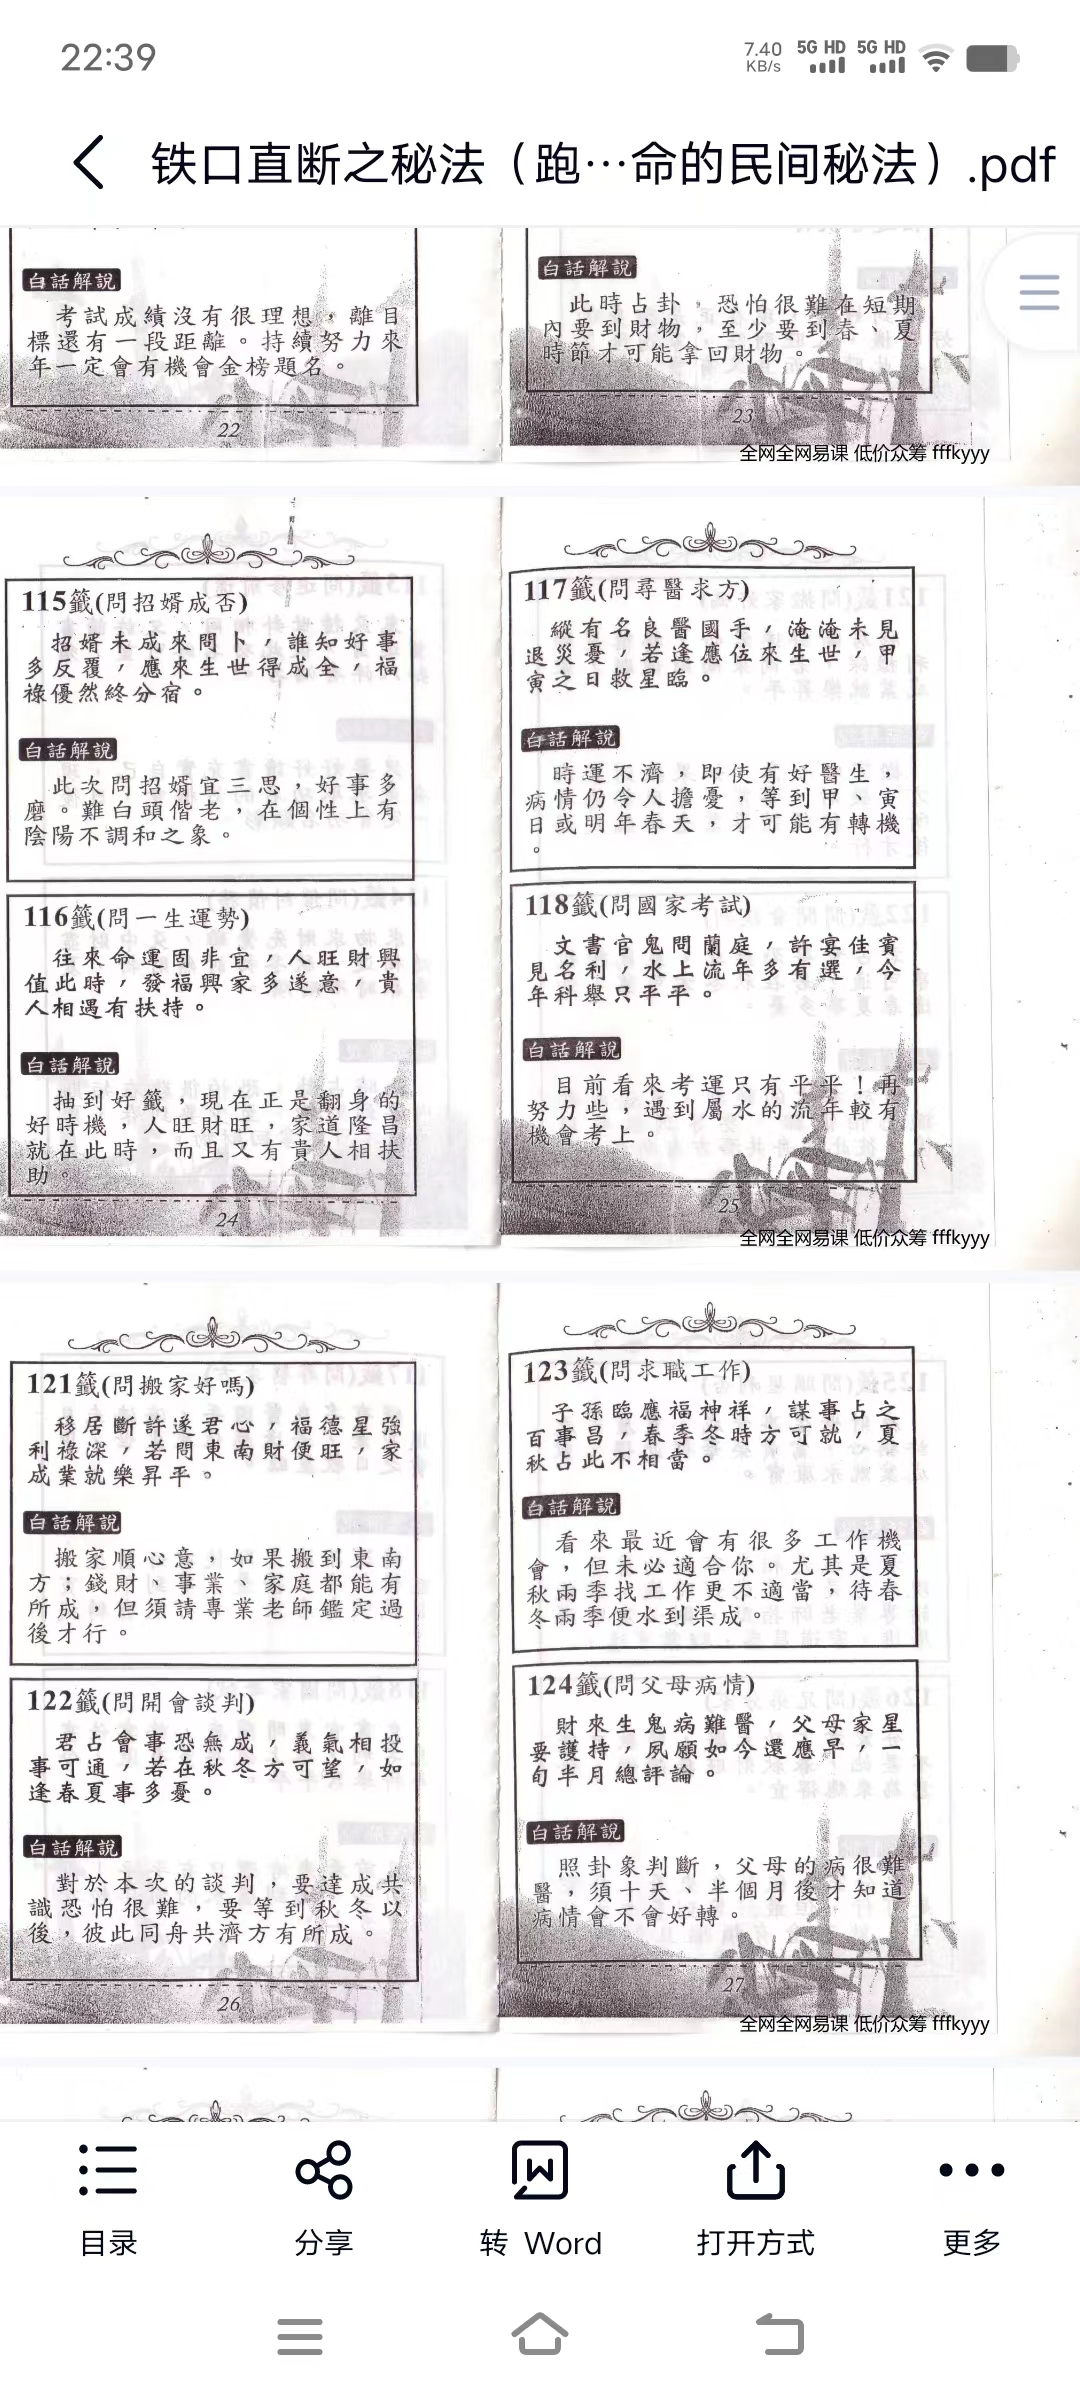 22:39
7.40 KB/s 5G HD 5G HD
铁口直断之秘法（跑…命的民间秘法）.pdf
白話解說
考試成績沒有很理想，離目
標還有一段距離。持續努力來
年一定會有機會金榜題名。
22
白話解說
此時占卦，恐怕很難在短期
內要到財物，至少要到春、夏
時節才可能拿回財物。
23
全网全网易课 低价众筹 fffkyyy
115籤(問招婿成否)
招婿未成來問卜，誰知好事
多反覆，應來生世得成全，福
祿優然終分宿。
白話解說
此次問招婿宜三思，好事多
磨。難白頭偕老，在個性上有
陰陽不調和之象。
116籤(問一生運勢)
往來命運固非宜，人旺財興
值此時，發福興家多遂意，貴
人相遇有扶持。
白話解說
抽到好籤，現在正是翻身的
好時機，人旺財旺，家道隆昌
就在此時，而且又有貴人相扶
助。
24
117籤(問尋醫求方)
縱有名良醫國手，淹淹未見
退災憂，若逢應位來生世，甲
寅之日救星臨。
白話解說
時運不濟，即使有好醫生，
病情仍令人擔憂，等到甲、寅
日或明年春天，才可能有轉機
。
118籤(問國家考試)
文書官鬼問蘭庭，許宴佳賓
見名利，水上流年多有選，今
年科舉只平平。
白話解說
目前看來考運只有平平！再
努力些，遇到屬水的流年較有
機會考上。
25
全网全网易课 低价众筹 fffkyyy
121籤(問搬家好嗎)
移居斷許遂君心，福德星強
利祿深，若問東南財便旺，家
成業就樂昇平。
白話解說
搬家順心意，如果搬到東南
方；錢財、事業、家庭都能有
所成，但須請專業老師鑑定過
後才行。
122籤(問開會談判)
君占會事恐無成，義氣相投
事可通，若在秋冬方可望，如
逢春夏事多憂。
白話解說
對於本次的談判，要達成共
識恐怕很難，要等到秋冬以
後，彼此同舟共濟方有所成。
26
123籤(問求職工作)
子孫臨應福神祥，謀事占之
百事昌，春季冬時方可就，夏
秋占此不相當。
白話解說
看來最近會有很多工作機
會，但未必適合你。尤其是夏
秋兩季找工作更不適當，待春
冬兩季便水到渠成。
124籤(問父母病情)
財來生鬼病難醫，父母家星
要護持，夙願如今還應早，一
旬半月總評論。
白話解說
照卦象判斷，父母的病很難
醫，須十天、半個月後才知道
病情會不會好轉。
27
全网全网易课 低价众筹 fffkyyy
目录 分享 转 Word 打开方式 更多